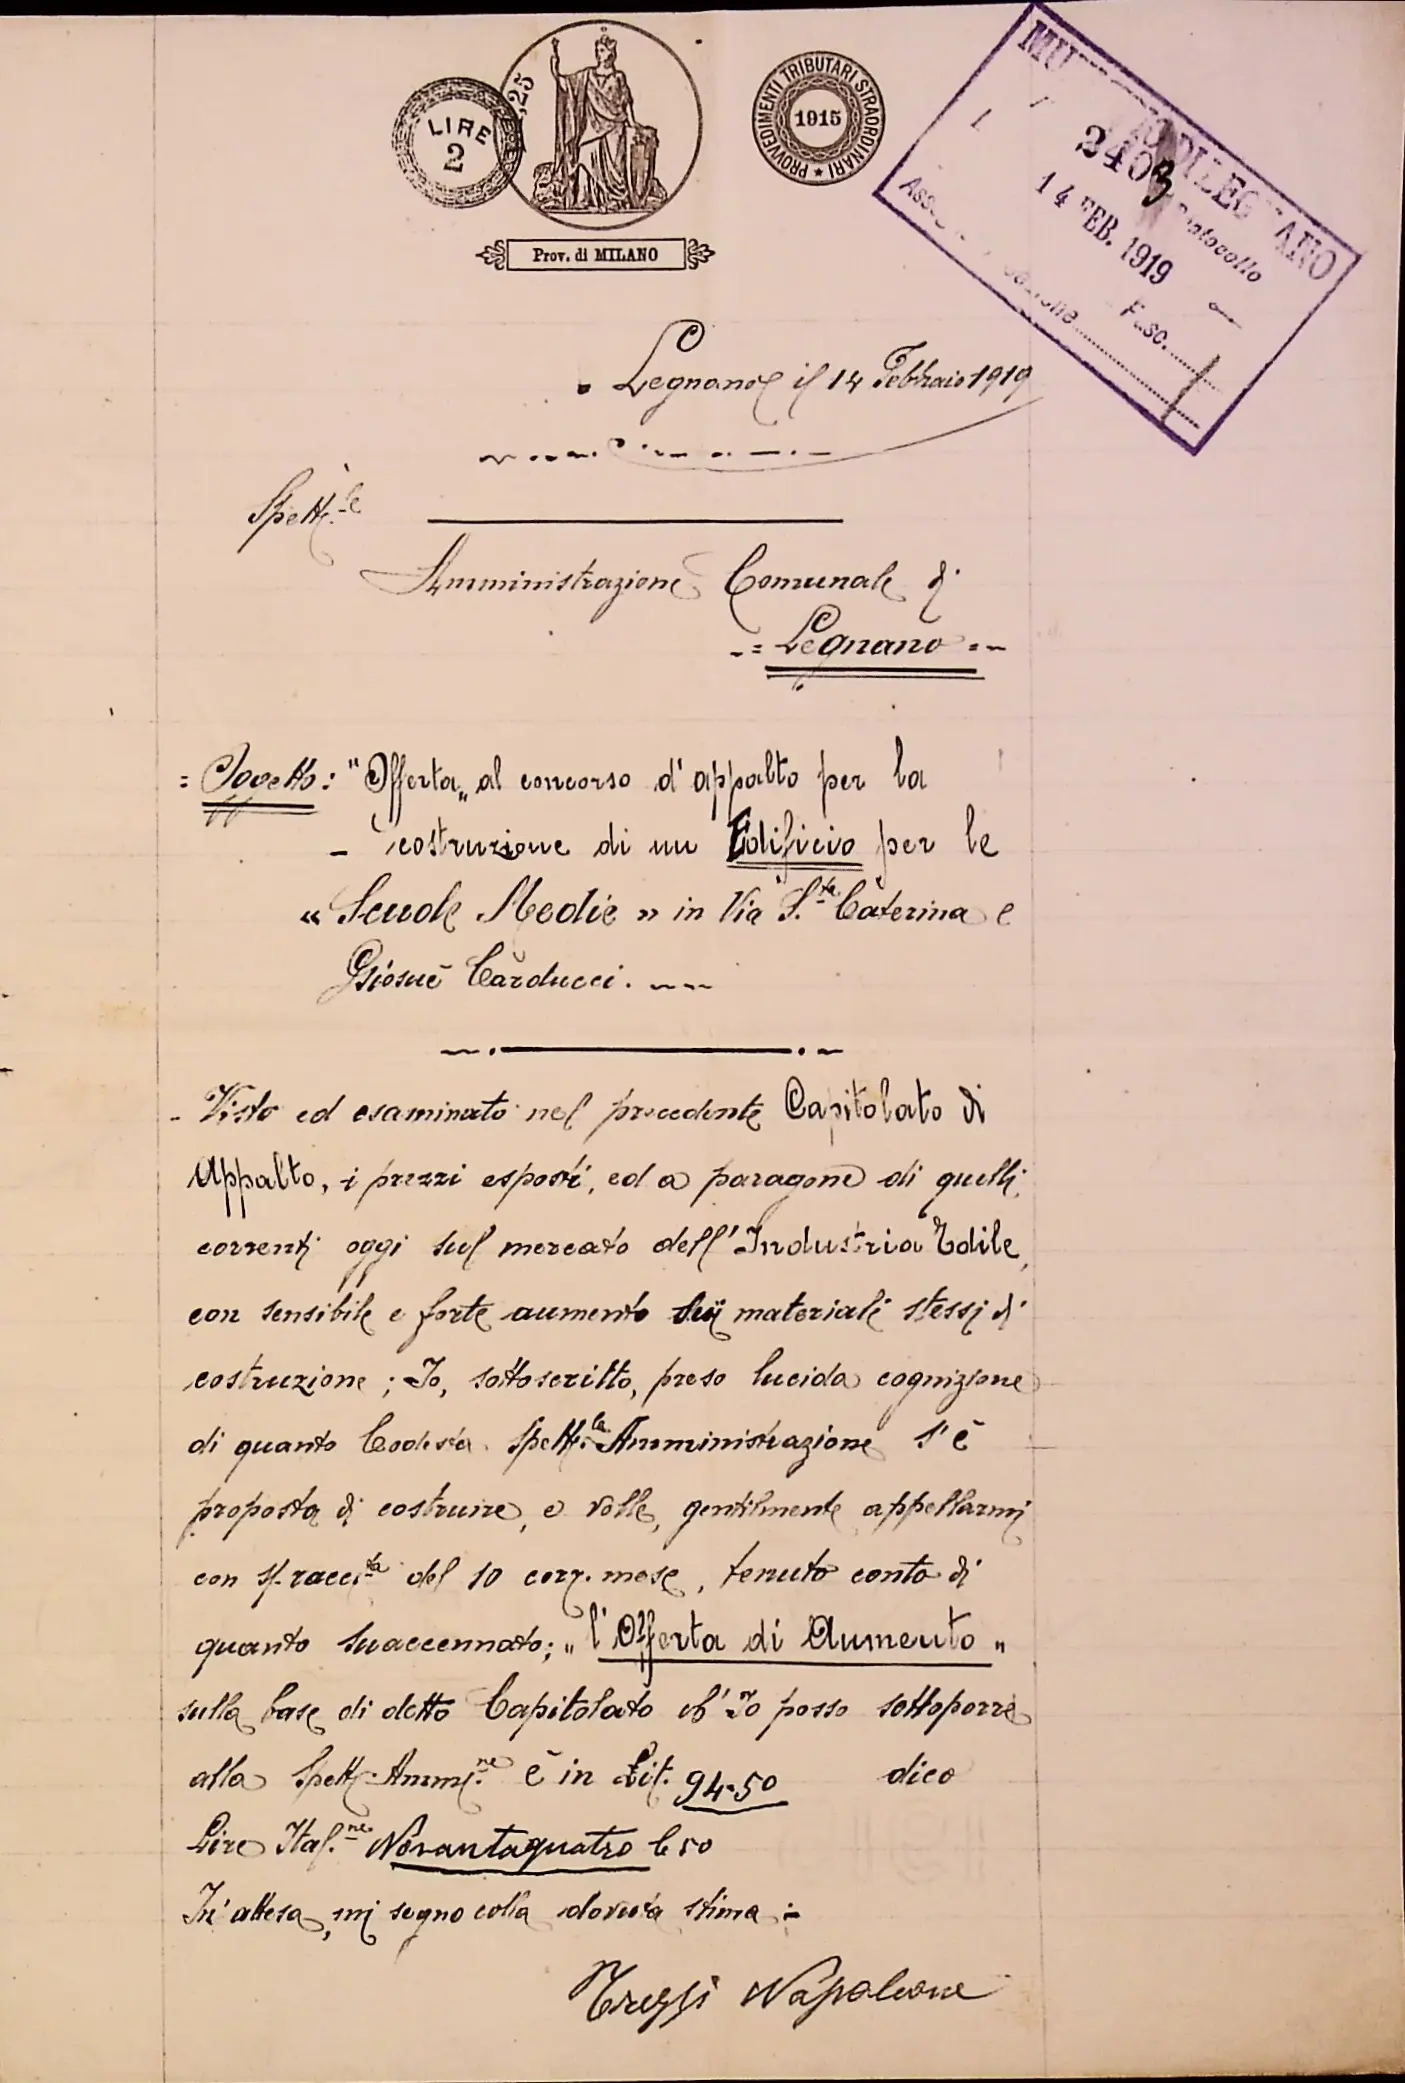 LIRE
2
1,25
PROVVEDIMENTI TRIBUTARI STRAORDINARI
1915
Prov. di MILANO
2403
Protocollo
14 FEB. 1919
Fasc.
Legnano il 14 Febbraio 1919
Spett.le
Amministrazione Comunale di
-= Legnano =-
= Oggetto: "Offerta„ al concorso d'appalto per la
- costruzione di un Edificio per le
“Scuole Medie” in Via S.ta Caterina e
Giosuè Carducci.
- Visto ed esaminato nel precedente Capitolato di
Appalto, i prezzi esposti, ed a paragone di quelli
correnti oggi sul mercato dell'Industria Edile,
con sensibile e forte aumento sui materiali stessi di
costruzione; Io, sottoscritto, preso lucida cognizione
di quanto Codesta Spett.le Amministrazione s'è
proposta di costruire, e volle, gentilmente appellarmi
con sp. racc.ta del 10 corr. mese, tenuto conto di
quanto suaccennato; „l'Offerta di Aumento„
sulla base di detto Capitolato ch'Io posso sottoporre
alla Spett. Amm.ne è in Lit. 94.50 dico
Lire Ital.ne Novantaquatro C 50
In attesa, mi segno colla dovuta stima :-
Napoleone